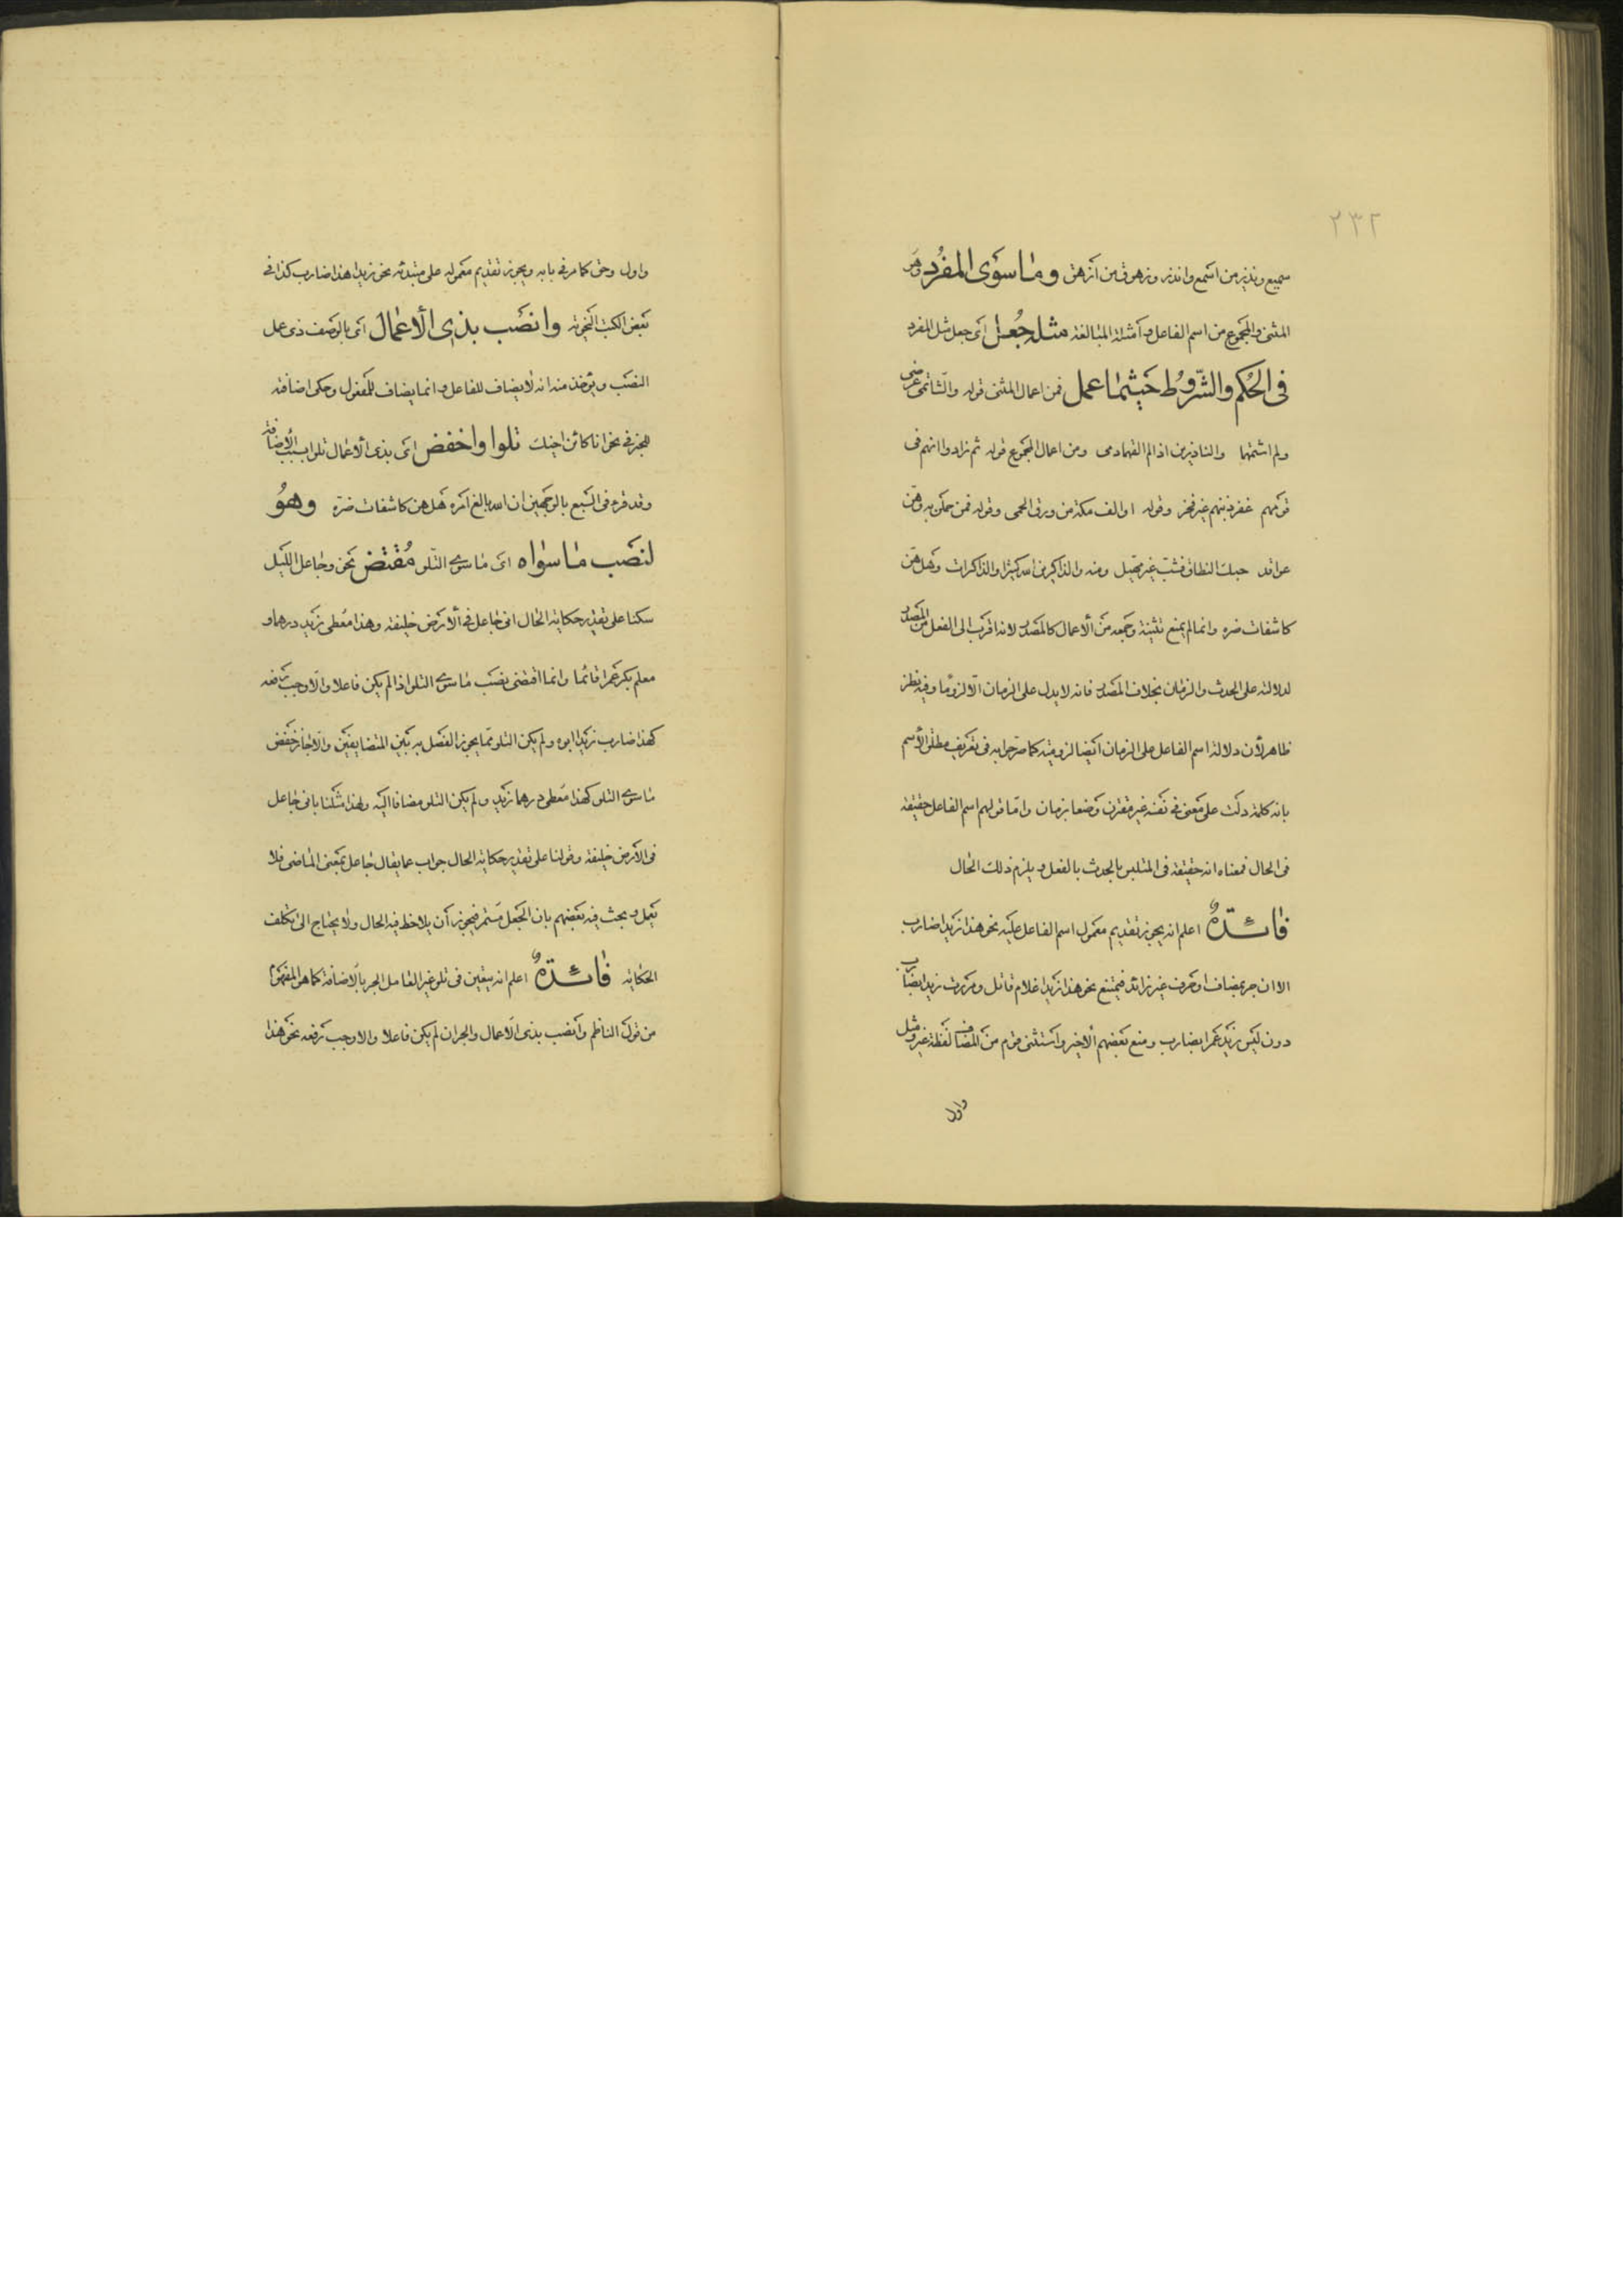 ٢٣٢
سميع ونذير من اسمع وانذر وزهوق من ازهق وما سوى المفرد وهو
المثنى والمجموع من اسم الفاعل وامثلة المبالغة مثله جعل اى جعل مثل المفرد
فى الحكم والشروط حيثما عمل فمن اعمال المثنى قوله والشاتمى عرضى
ولم اشتمهما والناذرين اذا لم القهما دمى ومن اعمال المجموع قوله ثم زادوا انهم فى
قومهم غفر ذنبهم غير فخر وقوله اوالف مكة من ورق الحمى وقوله فمن حملن به وهن
عواقد حبك النطاق فشب غير مهبل ومنه والذاكرين الله كثيرا والذاكرات وهل هن
كاشفات ضره وانما لم يمنع تثنيته وجمعه من الاعمال كالمصدر لانه اقرب الى الفعل من المصدر
لدلالته على الحدث والزمان بخلاف المصدر فانه لا يدل على الزمان الا لزوما وفيه نظر
ظاهر لأن دلالة اسم الفاعل على الزمان ايضا لزومية كما صرحوا به فى تعريف مطلق الأسم
بانه كلمة دلت على معنى فى نفسه غير مقترن وضعا بزمان واما قولهم اسم الفاعل حقيقة
فى الحال فمعناه انه حقيقة فى المتلبس بالحدث بالفعل ويلزم ذلك الحال
فائدة اعلم انه يجوز تقديم معمول اسم الفاعل عليه نحو هذا زيدا ضارب
الا ان جر بمضاف او حرف غير زائد فيمتنع نحو هذا زيدا غلام قاتل ومررت زيدا بضارب
دون ليس زيد عمرا بضارب ومنع بعضهم الأخير واستثنى قوم من المضاف لفظة غير ومثل
واول
واول وحق كما مر فى بابه ويجوز تقديم معموله على مبتدئه نحو زيدا هذا ضارب كذا فى
بعض الكتب النحوية وانصب بذى الأعمال اى بالوصف ذى عمل
النصب ويؤخذ منه انه لا يضاف للفاعل وانما يضاف للمفعول وحكى اضافته
للخبر فى نحو انا كائن اخيك تلوا واخفض اى بذى الأعمال تلوا بسبب الأضافة
وقد قرء فى السبع بالوجهين ان الله بالغ امره هل هن كاشفات ضره وهو
لنصب ما سواه اى ما سوى التلو مقتض نحو وجاعل الليل
سكنا على تقدير حكاية الحال انى جاعل فى الأرض خليفة وهذا معطى زيد درهما و
معلم بكر عمرا قائما وانما اقتضى نصب ما سوى التلو اذا لم يكن فاعلا والا وجب رفعه
كهذا ضارب زيدا ابوه ولم يكن التلو مما يجوز الفصل به بين المتضايفين والا جاز خفض
ما سوى التلو كهذا معطى درهما زيد ولم يكن التلو مضافا اليه ولهذا مثلنا بانى جاعل
فى الأرض خليفة وقولنا على تقدير حكاية الحال جواب عما يقال جاعل بمعنى الماضى فلا
يعمل وبحث فيه بعضهم بان الجعل مستمر فيجوز أن يلاحظ فيه الحال ولا يحتاج الى تكلف
الحكاية فائدة اعلم انه يتعين فى تلو غير العامل الجر بالاضافة كما هو المفهوم
من قول الناظم وانصب بذى الاعمال والجر ان لم يكن فاعلا والا وجب رفعه نحو هذا